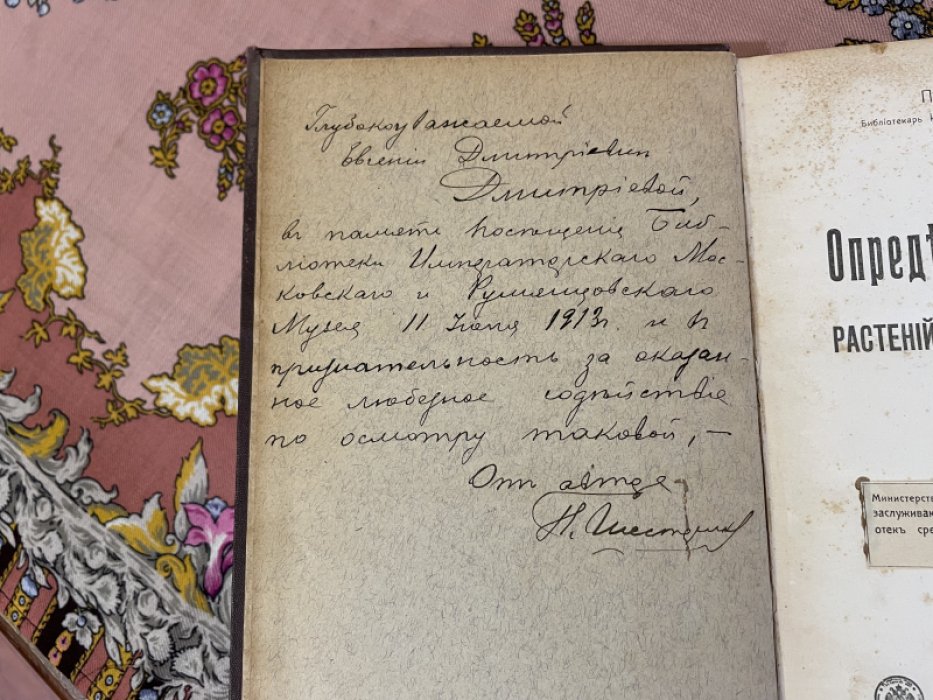 Глубокоуважаемой
Евгеніи Дмитріевнѣ
Дмитріевой,
въ память посѣщенія Биб-
ліотеки Императорскаго Мос-
ковскаго и Румянцовскаго
Музея 11 Іюня 1913 г. и въ
признательность за оказан-
ное любезное содѣйствіе
по осмотру таковой, —
Отъ автора
Библіотекарь
Опредѣ
РАСТЕНІЙ
Министерств
заслуживаю
отекъ сре